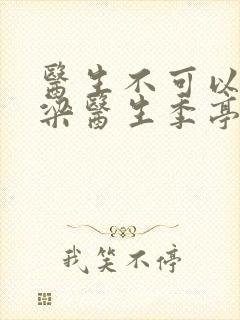 醫生不可以
梁醫生季亭
我笑不停